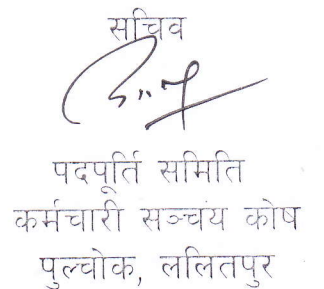 सचिव
पदपूर्ति समिति
कर्मचारी सञ्चय कोष
पुल्चोक, ललितपुर